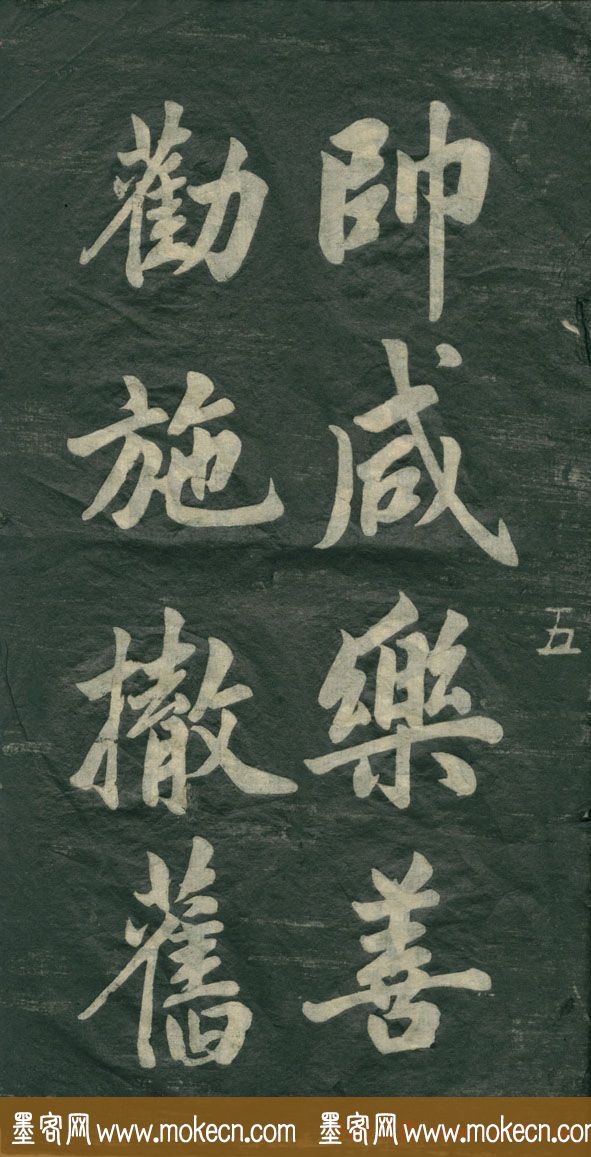 五
帥咸樂善
勸施撤舊
墨客网 www.mokecn.com 墨客网 www.mokecn.com